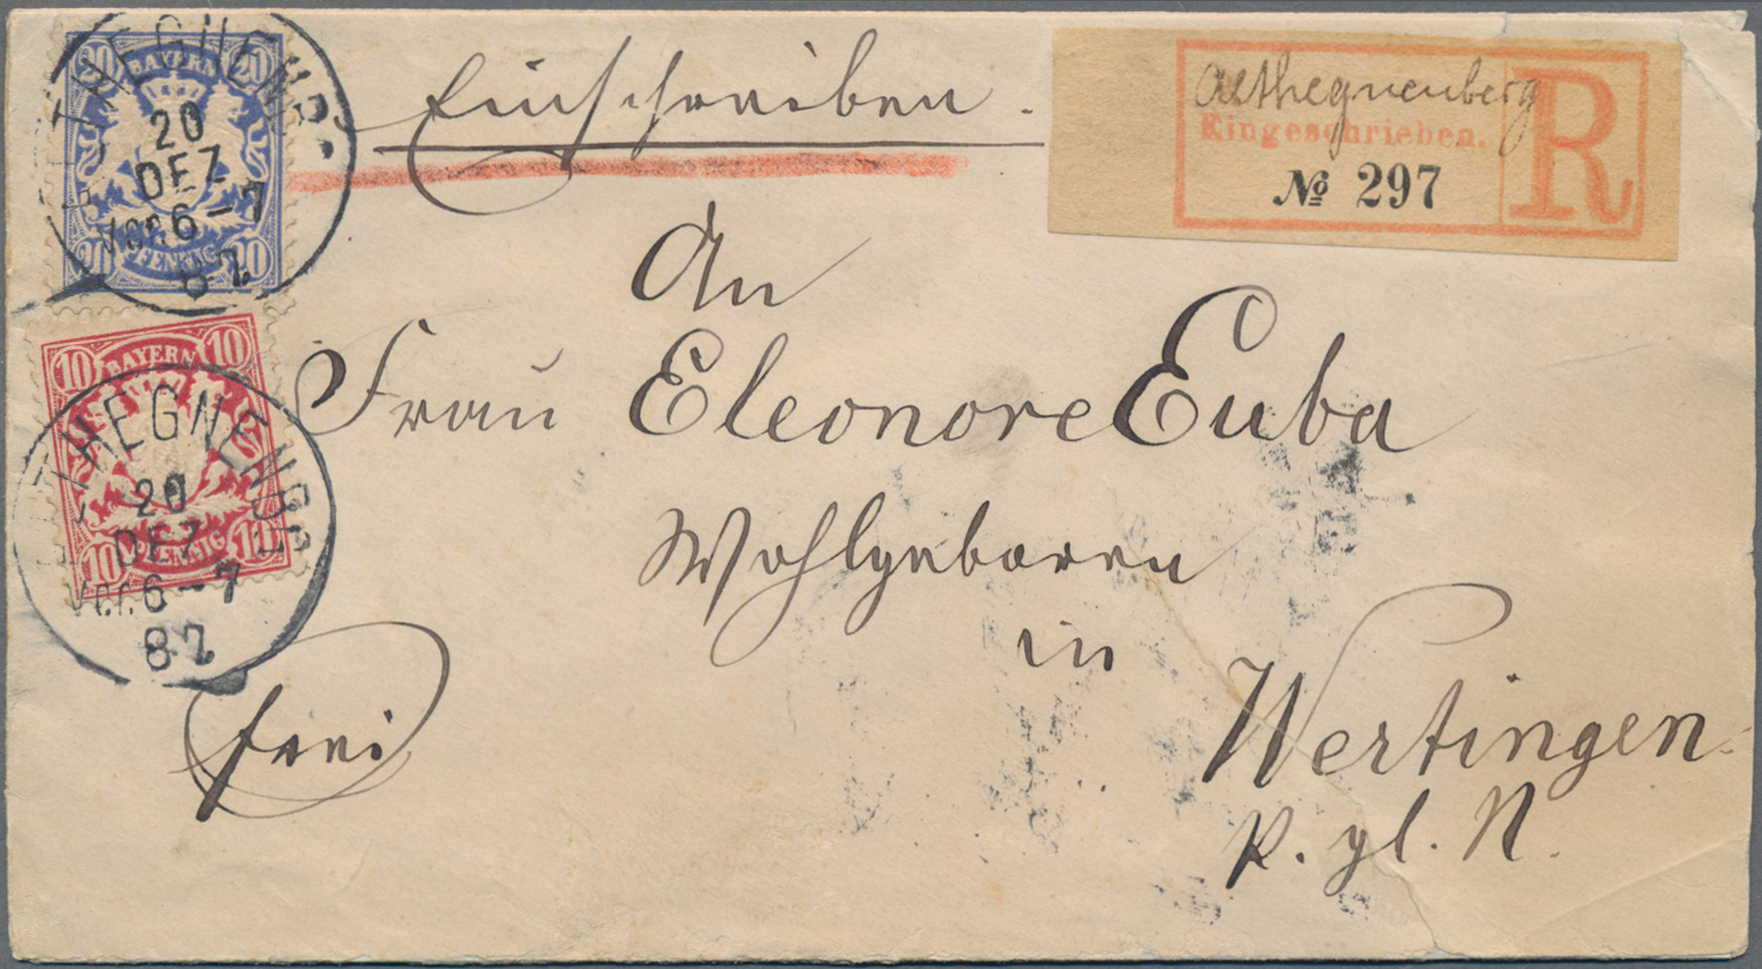 20 BAYERN 20
20 PFENNIG 20
ALTHEGNENBG.
20
DEZ
Vor. 6-7
82
Einschreiben.
Althegnenberg
Eingeschrieben.
№ 297
R
10 BAYERN 10
10 PFENNIG 10
ALTHEGNENBG.
20
DEZ
Vor. 6-7
82
An
Frau Eleonore Euba
Wohlgeboren
in
Wertingen.
frei